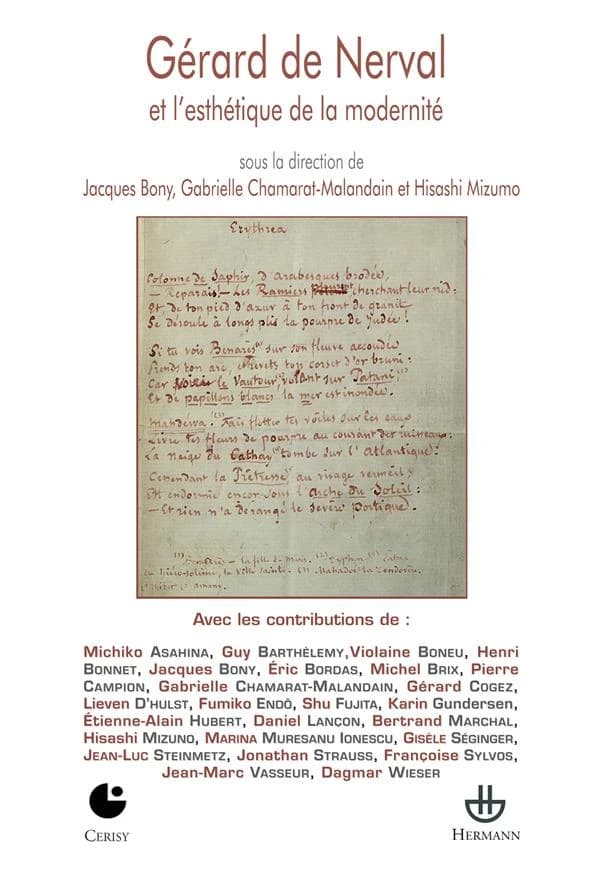 Gérard de Nerval
et l'esthétique de la modernité
sous la direction de
Jacques Bony, Gabrielle Chamarat-Malandain et Hisashi Mizumo
Erythrea
Colonne de Saphir, d'arabesques brodée,
— Reparais! — Les Ramiers cherchant leur nid:
Et, de ton pied d'azur à ton front de granit
Se déroule à longs plis la pourpre de Judée!
Si tu vois Bénarès (1) sur son fleuve accoudée
Prends ton arc, et revets ton corset d'or bruni:
Car le Vautour, volant sur Patani,
Et de papillons blancs la mer est inondée.
Mahdéwa! Fais flotter tes voiles sur les eaux
Livre tes fleurs de pourpre au courant des ruisseaux:
La neige du Cathay tombe sur l'Atlantique:
Cependant la Prêtresse au visage vermeil
Est endormie encor sous l'Arche du Soleil:
— Et rien n'a dérangé le sévère portique.
Avec les contributions de :
Michiko ASAHINA, Guy BARTHÈLEMY,Violaine BONEU, Henri
BONNET, Jacques BONY, Éric BORDAS, Michel BRIX, Pierre
CAMPION, Gabrielle CHAMARAT-MALANDAIN, Gérard COGEZ,
Lieven D'HULST, Fumiko ENDÔ, Shu FUJITA, Karin GUNDERSEN,
Étienne-Alain HUBERT, Daniel LANÇON, Bertrand MARCHAL,
Hisashi MIZUNO, MARINA MURESANU IONESCU, GISÈLE SÉGINGER,
JEAN-LUC STEINMETZ, Jonathan STRAUSS, Françoise SYLVOS,
Jean-Marc VASSEUR, Dagmar WIESER
CERISY
HERMANN